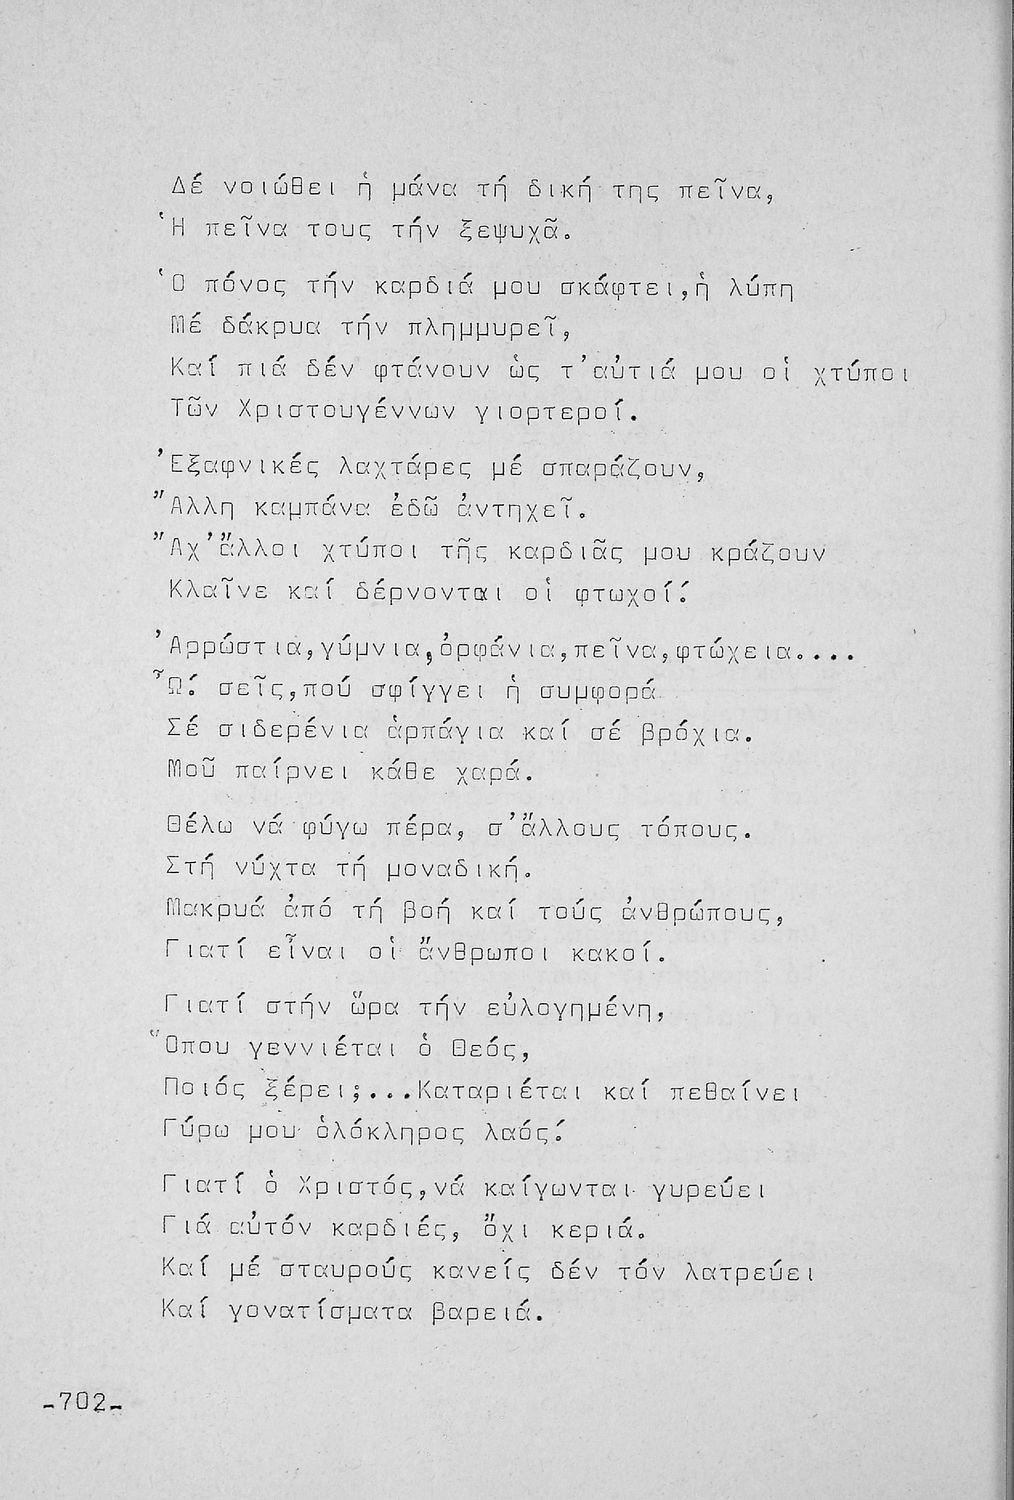 Δέ νοιώθει ἡ μάνα τή δική της πεῖνα,
Ἡ πεῖνα τους τήν ξεψυχᾶ.
Ὁ πόνος τήν καρδιά μου σκάφτει,ἡ λύπη
Μέ δάκρυα τήν πλημμυρεῖ,
Καί πιά δέν φτάνουν ὡς τ'αὐτιά μου οἱ χτύποι
Τῶν Χριστουγέννων γιορτεροί.
Ἐξαφνικές λαχτάρες μέ σπαράζουν,
Ἄλλη καμπάνα ἐδῶ ἀντηχεῖ.
Ἄχ'ἄλλοι χτύποι τῆς καρδιᾶς μου κράζουν
Κλαῖνε καί δέρνονται οἱ φτωχοί!
Ἀρρώστια,γύμνια,ὀρφάνια,πεῖνα,φτώχεια....
Ὦ! σεῖς,πού σφίγγει ἡ συμφορά
Σέ σιδερένια ἁρπάγια καί σέ βρόχια.
Μοῦ παίρνει κάθε χαρά.
Θέλω νά φύγω πέρα, σ'ἄλλους τόπους.
Στή νύχτα τή μοναδική.
Μακρυά ἀπό τή βοή καί τούς ἀνθρώπους,
Γιατί εἶναι οἱ ἄνθρωποι κακοί.
Γιατί στήν ὥρα τήν εὐλογημένη,
Ὅπου γεννιέται ὁ Θεός,
Ποιός ξέρει;...Καταριέται καί πεθαίνει
Γύρω μου ὁλόκληρος λαός!
Γιατί ὁ Χριστός,νά καίγωνται γυρεύει
Γιά αὐτόν καρδιές, ὄχι κεριά.
Καί μέ σταυρούς κανείς δέν τόν λατρεύει
Καί γονατίσματα βαρειά.
-702-